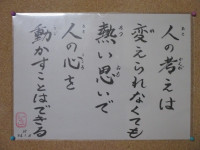 人の考えは
変えられなくても
熱い思いで
人の心を
動かすことはできる